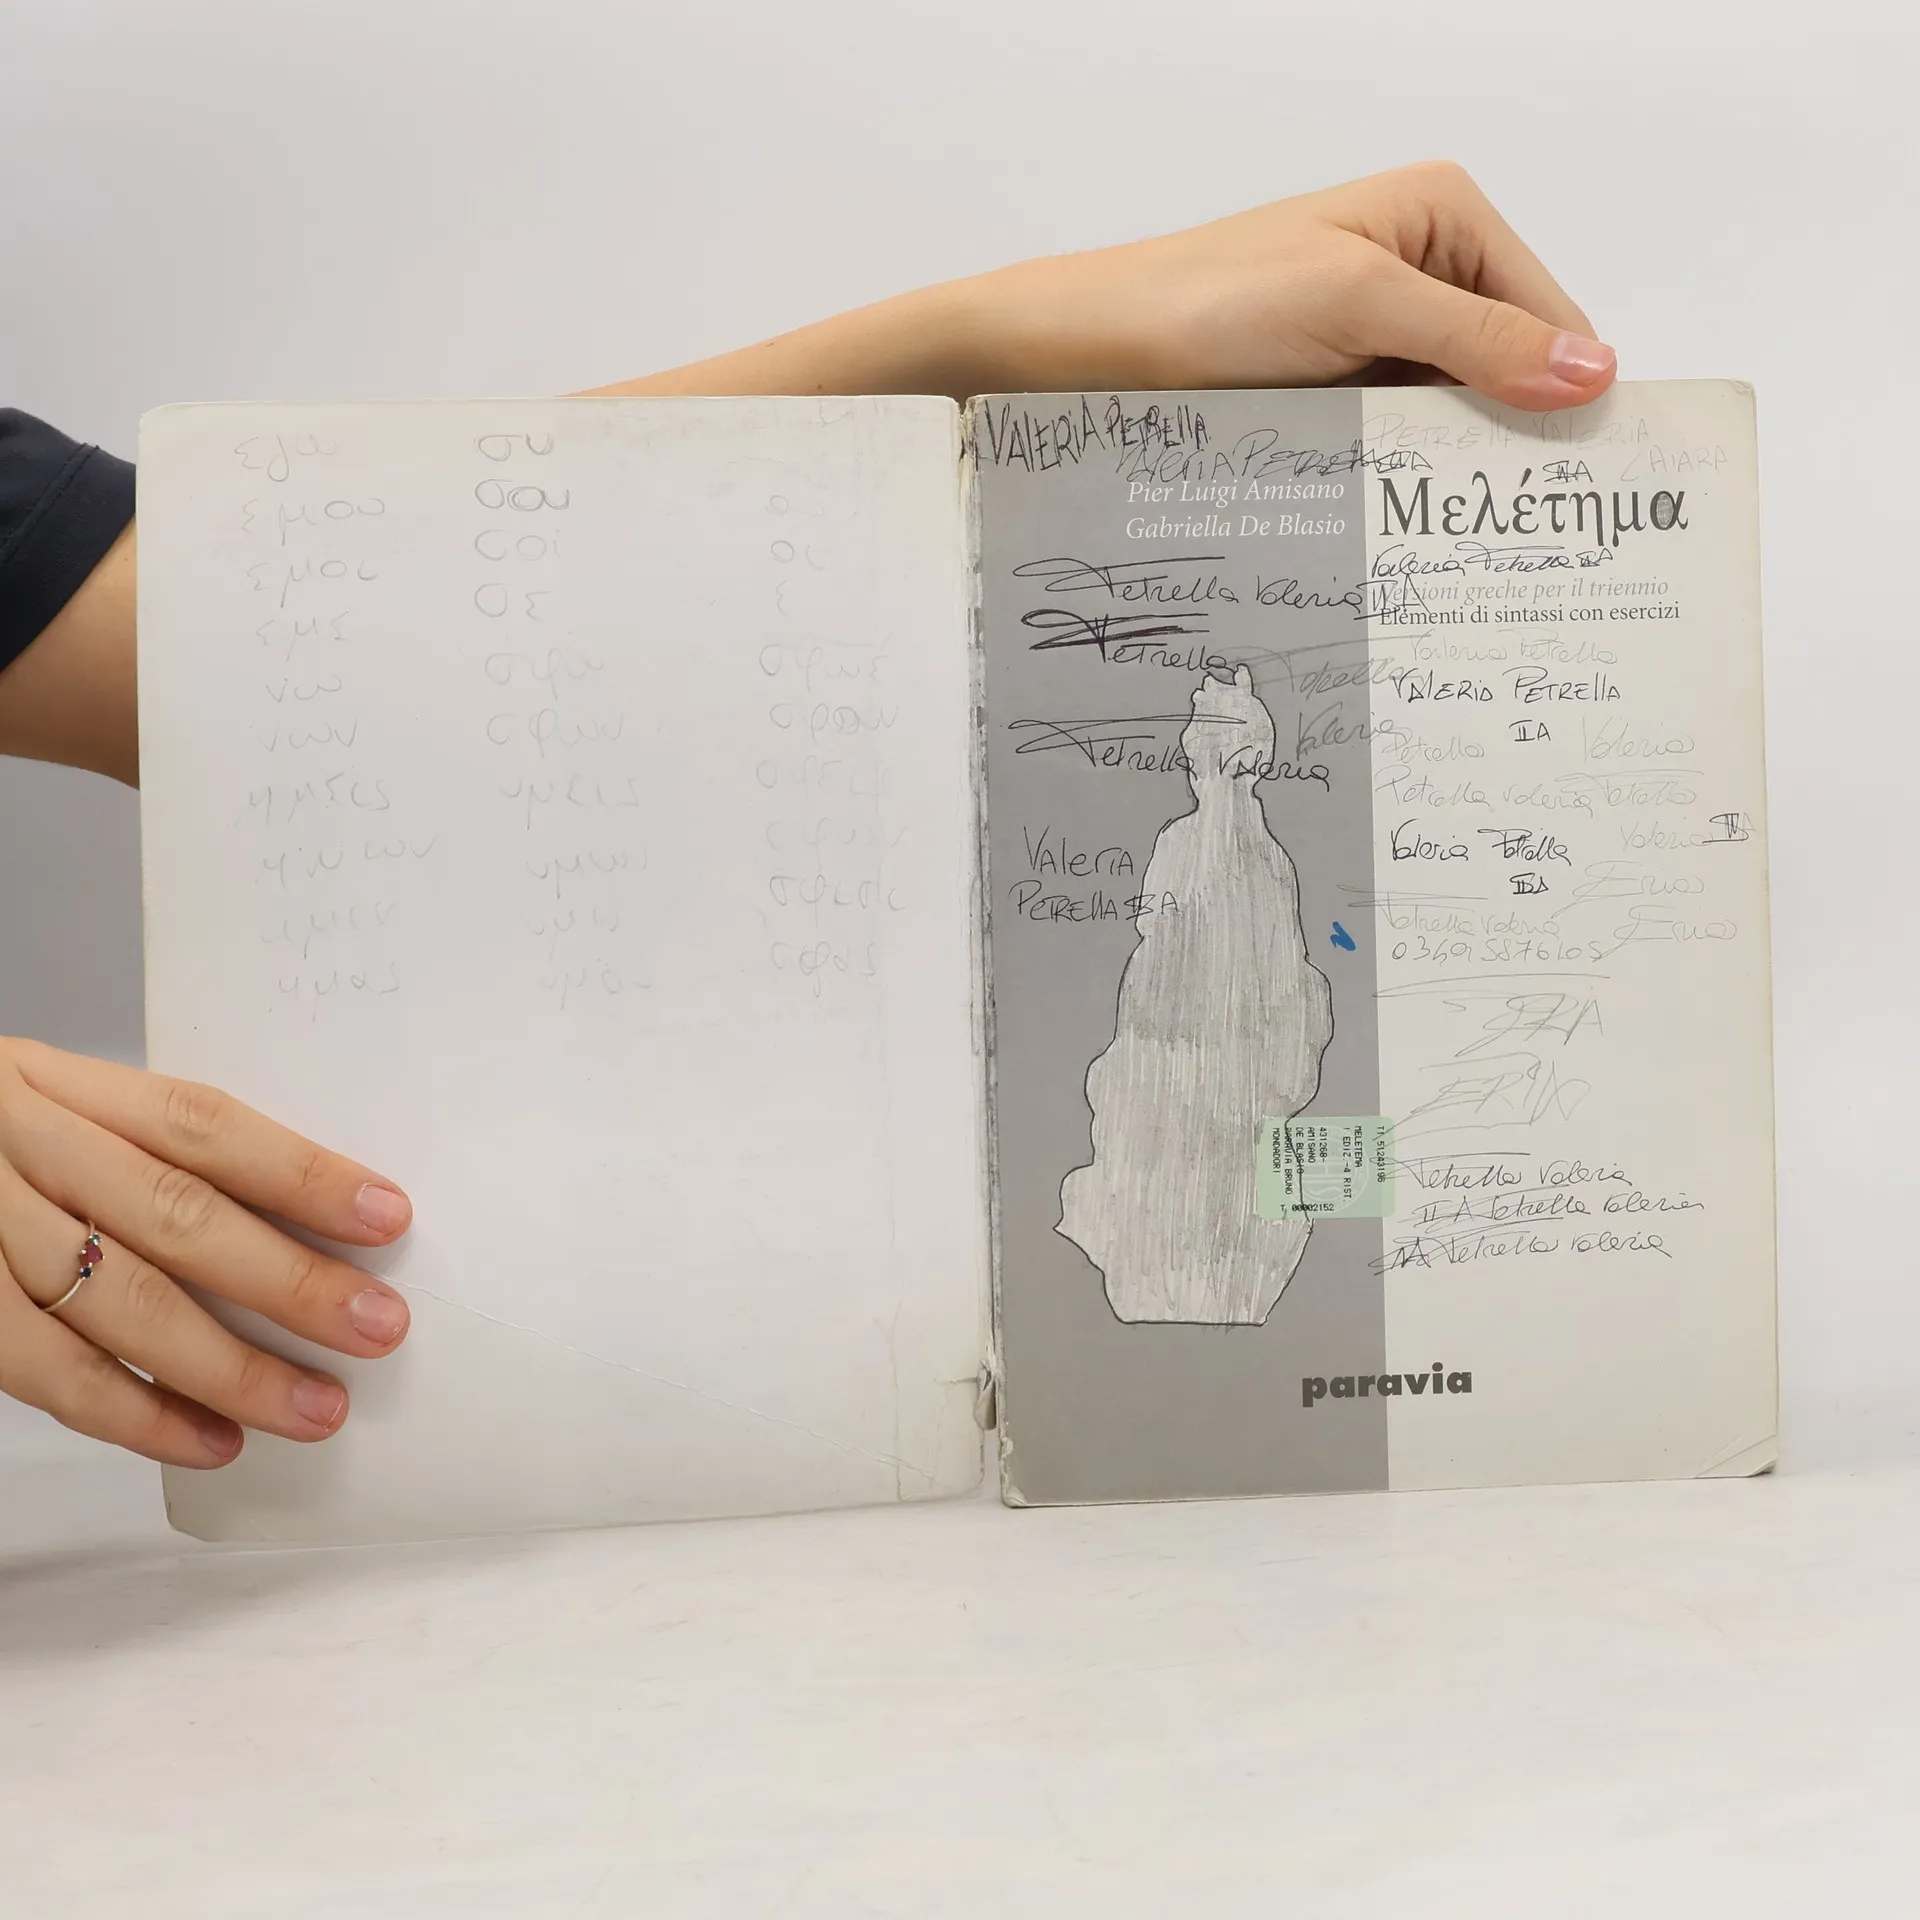 VALERIA PETRELLA
Valeria Petrella
PETRELLA VALERIA
CHIARA
Pier Luigi Amisano
Gabriella De Blasio
Μελέτημα
Valeria Petrella
Versioni greche per il triennio
Elementi di sintassi con esercizi
Petrella Valeria
Petrella
Valeria Petrella
Petrella
VALERIA PETRELLA
IIA
Valeria
Petrella Valeria
Petrella Valeria
Petrella Valeria Petrella
Valeria Petrella
Valeria
Valeria
PETRELLA
Eria
Petrella Valeria
Eria
ERIA
ERIA
MELETEMA
1 EDIZ.-4 RIST.
431268-
AMISANO
DE BLASIO
PARAVIA BRUNO
MONDADORI
T 00002152
Petrella Valeria
IIA Petrella Valeria
Petrella Valeria
paravia
εγω
συ
εμου
σου
οὑ
εμοι
σοι
οἱ
εμε
σε
ἑ
νω
σφω
νων
σφων
ημεις
υμεις
σφεις
ημων
υμων
σφων
ημιν
υμιν
ημας
υμας
σφας